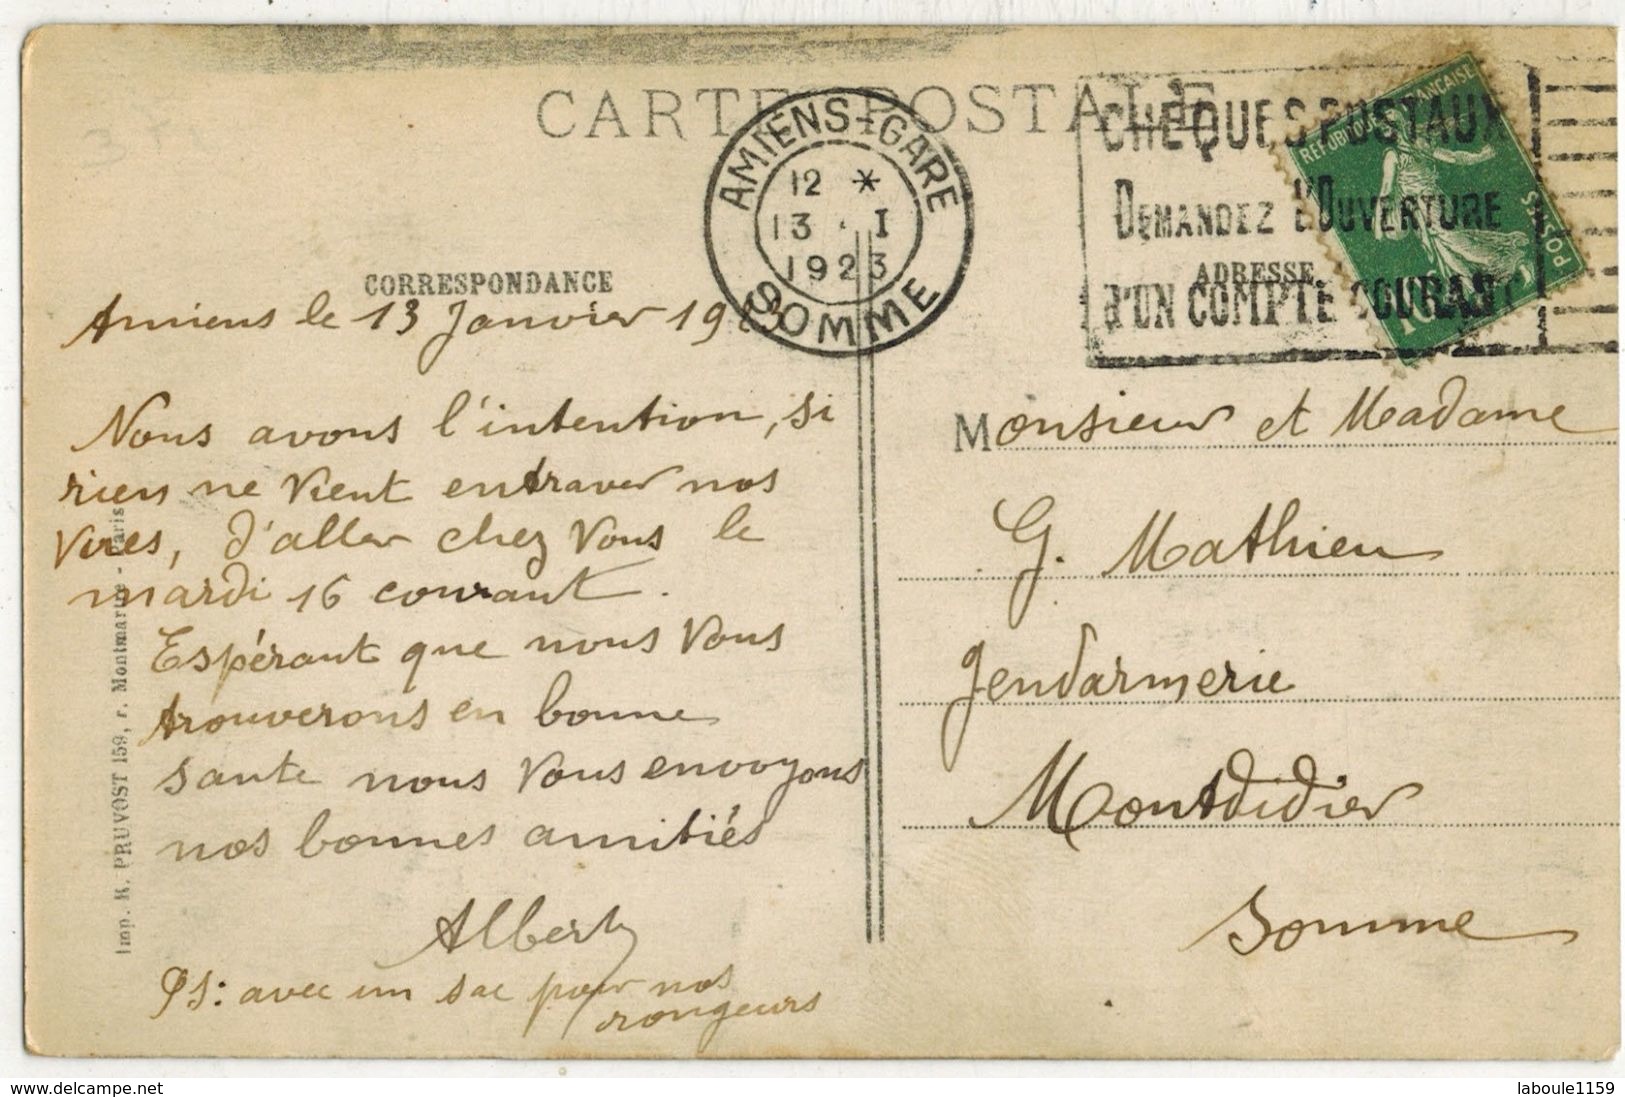 CARTE POSTALE
AMIENS-GARE
12 *
13 . I
1923
SOMME
CHÈQUES POSTAUX
DEMANDEZ L'OUVERTURE
D'UN COMPTE COURANT
REPUBLIQUE FRANÇAISE
POSTES
10
CORRESPONDANCE
ADRESSE
Amiens le 13 Janvier 1923
Nous avons l'intention, si
rien ne vient entraver nos
vues, d'aller chez vous le
mardi 16 courant.
Espérant que nous vous
trouverons en bonne
sante nous vous envoyons
nos bonnes amitiés
Albert
PS: avec un sac pour nos
rongeurs
Monsieur et Madame
G. Mathieu
Gendarmerie
Montdidier
Somme
Imp. H. PRUVOST 159, r. Montmartre - Paris
www.delcampe.net
laboule1159